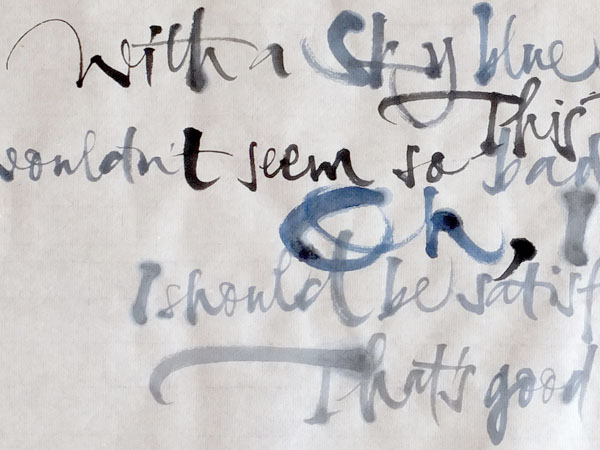 With a Sky blue
This
wouldn't seem so bad
Oh, I
I should be satisf
That's good